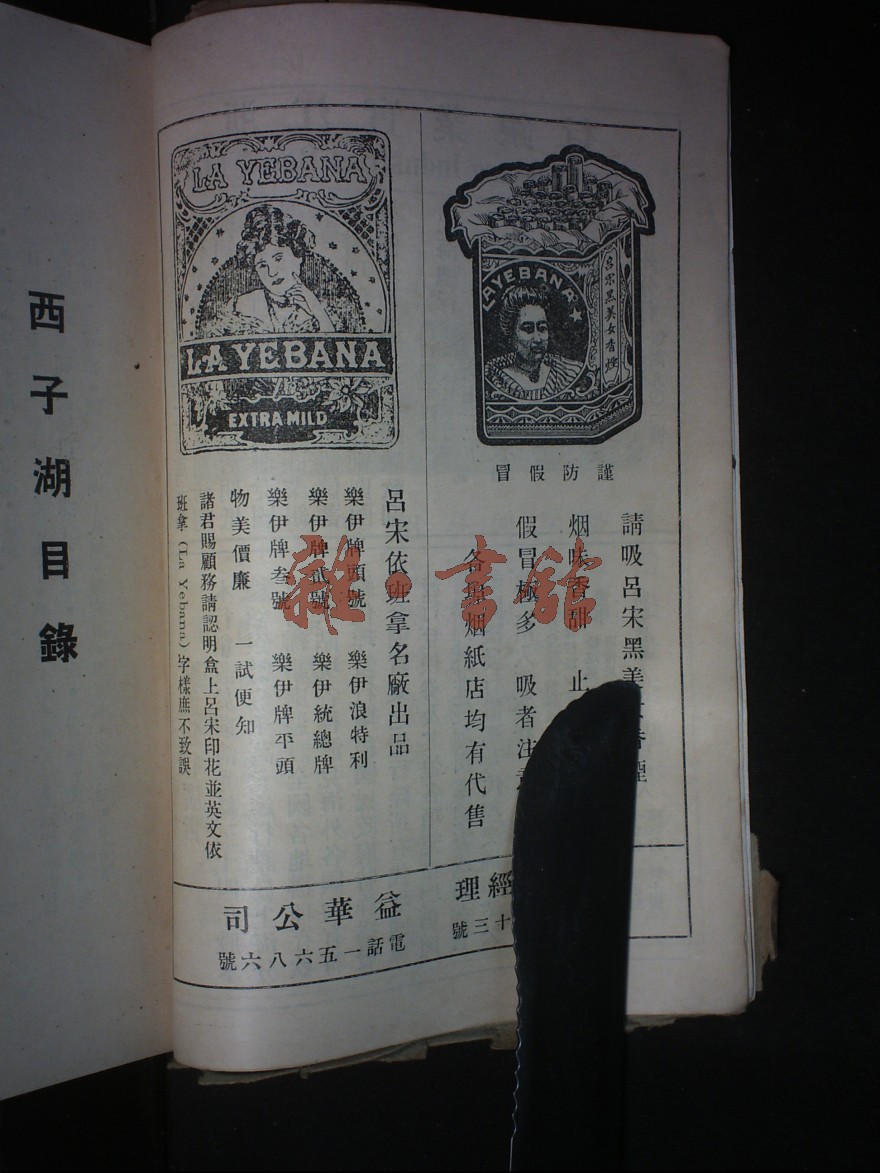 西子湖目錄
LA YEBANA
呂宋黑美女香煙
謹防假冒
請吸呂宋黑美
烟味香甜 止
假冒極多 吸者注
各埠烟紙店均有代售
經理
十三號
LA YEBANA
LA YEBANA
EXTRA MILD
呂宋依班拿名廠出品
樂伊牌頭號 樂伊浪特利
樂伊牌貳號 樂伊統總牌
樂伊牌叁號 樂伊牌平頭
物美價廉 一試便知
諸君賜顧務請認明盒上呂宋印花並英文依
班拿(La Yebana)字樣庶不致誤
益華公司
電話一五六八六號
雜·書館